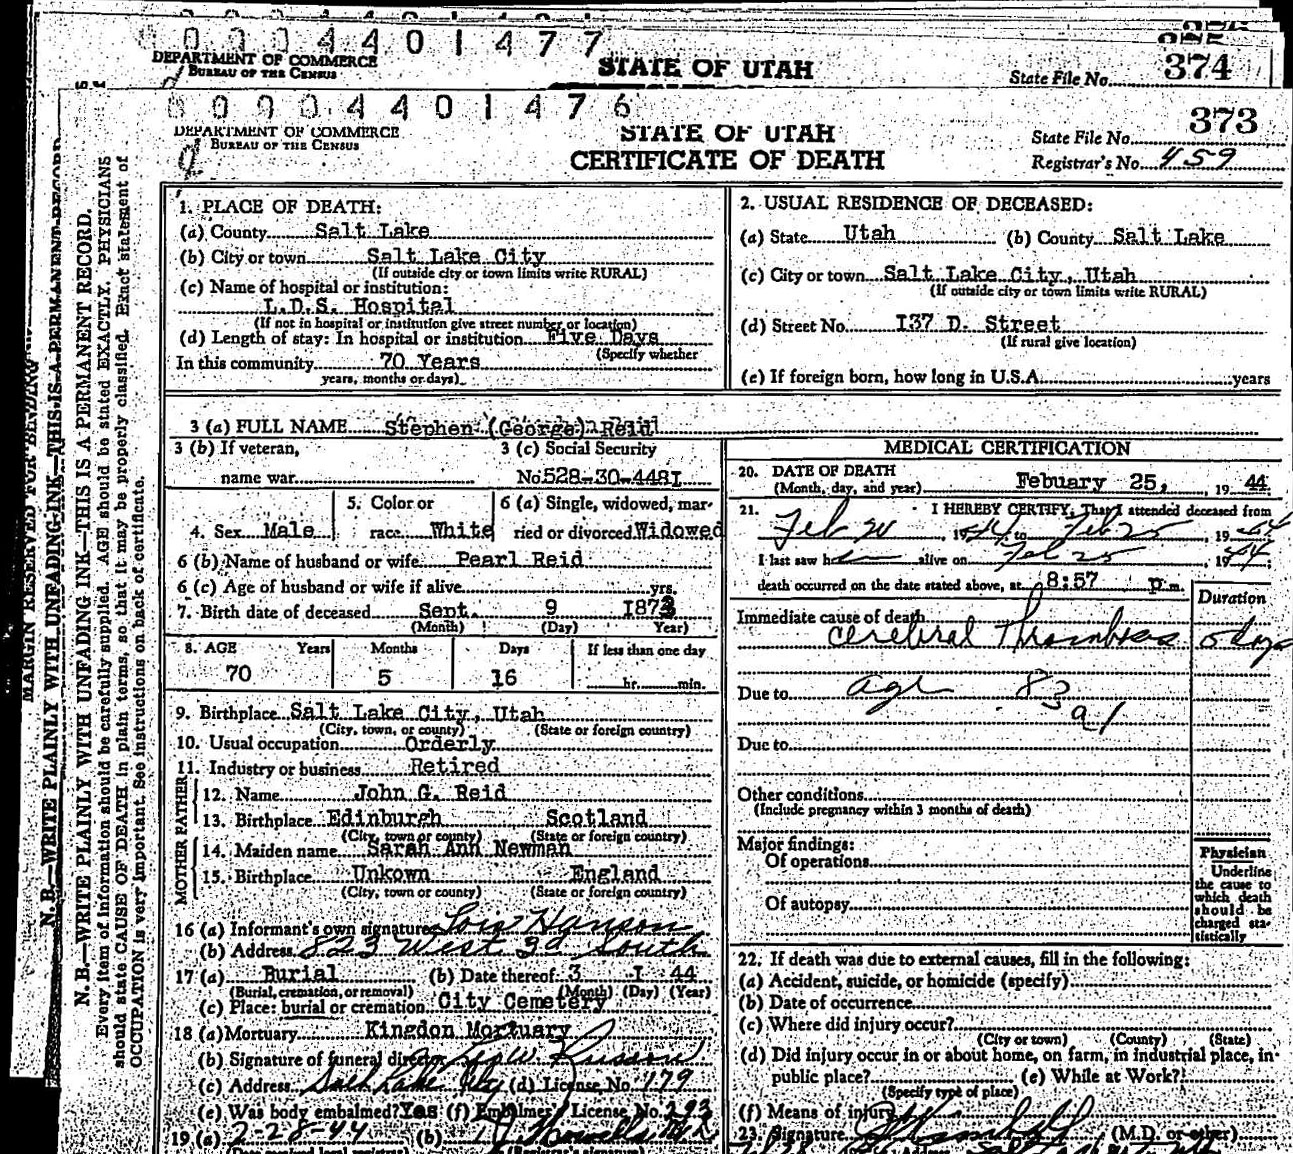 0 0 0 4 4 0 1 4 7 7
DEPARTMENT OF COMMERCE
BUREAU OF THE CENSUS
STATE OF UTAH
State File No. 374
0 0 0 4 4 0 1 4 7 6
DEPARTMENT OF COMMERCE
BUREAU OF THE CENSUS
STATE OF UTAH
CERTIFICATE OF DEATH
State File No. 373
Registrar's No. 459
MARGIN RESERVED FOR BINDING
N. B.—WRITE PLAINLY WITH UNFADING INK—THIS IS A PERMANENT RECORD
N. B.—WRITE PLAINLY WITH UNFADING INK—THIS IS A PERMANENT RECORD.
Every item of information should be carefully supplied. AGE should be stated EXACTLY. PHYSICIANS
should state CAUSE OF DEATH in plain terms, so that it may be properly classified. Exact statement of
OCCUPATION is very important. See instructions on back of certificate.
1. PLACE OF DEATH:
(a) County Salt Lake
(b) City or town Salt Lake City
(If outside city or town limits write RURAL)
(c) Name of hospital or institution:
L.D.S. Hospital
(If not in hospital or institution give street number or location)
(d) Length of stay: In hospital or institution Five Days
(Specify whether
In this community 70 Years
years, months or days)
2. USUAL RESIDENCE OF DECEASED:
(a) State Utah (b) County Salt Lake
(c) City or town Salt Lake City, Utah
(If outside city or town limits write RURAL)
(d) Street No. I37 D. Street
(If rural give location)
(e) If foreign born, how long in U.S.A. years
3 (a) FULL NAME Stephen (George) Reid
3 (b) If veteran,
name war
3 (c) Social Security
No. 528-30-448I
4. Sex Male
5. Color or
race White
6 (a) Single, widowed, mar-
ried or divorced Widowed
6 (b) Name of husband or wife Pearl Reid
6 (c) Age of husband or wife if alive yrs.
7. Birth date of deceased Sept. 9 I873
(Month) (Day) Year)
8. AGE Years Months Days If less than one day
70 5 16 hr. min.
9. Birthplace Salt Lake City, Utah
(City, town, or county) (State or foreign country)
10. Usual occupation Orderly
11. Industry or business Retired
FATHER
12. Name John G. Reid
13. Birthplace Edinburgh Scotland
(City, town or county) (State or foreign country)
MOTHER
14. Maiden name Sarah Ann Newman
15. Birthplace Unkown England
(City, town or county) (State or foreign country)
16 (a) Informant's own signature Lois Hanson
(b) Address 823 West 3d South
17 (a) Burial (b) Date thereof 3 I 44
(Burial, cremation, or removal) (Month) (Day) (Year)
(c) Place: burial or cremation City Cemetery
18 (a) Mortuary Kingdon Mortuary
(b) Signature of funeral director
(c) Address Salt Lake City (d) License No. 179
(e) Was body embalmed? Yes (f) Embalmer's License No. 293
19 (a) 2-28-44 (b)
MEDICAL CERTIFICATION
20. DATE OF DEATH
(Month, day, and year) Febuary 25, 19 44
21. I HEREBY CERTIFY, That I attended deceased from
Feb 20, 1944 to Feb 25 1944
I last saw h alive on Feb 25, 1944
death occurred on the date stated above, at 8:57 p.m.
Duration
Immediate cause of death
Cerebral Thrombosis 5 days
Due to age 83
a/
Due to
Other conditions
(Include pregnancy within 3 months of death)
Major findings:
Of operations
Of autopsy
Physician
Underline
the cause to
which death
should be
charged sta-
tistically
22. If death was due to external causes, fill in the following:
(a) Accident, suicide, or homicide (specify)
(b) Date of occurrence
(c) Where did injury occur?
(City or town) (County) (State)
(d) Did injury occur in or about home, on farm, in industrial place, in
public place? (e) While at Work?
(Specify type of place)
(f) Means of injury
23. Signature (M.D. or other)